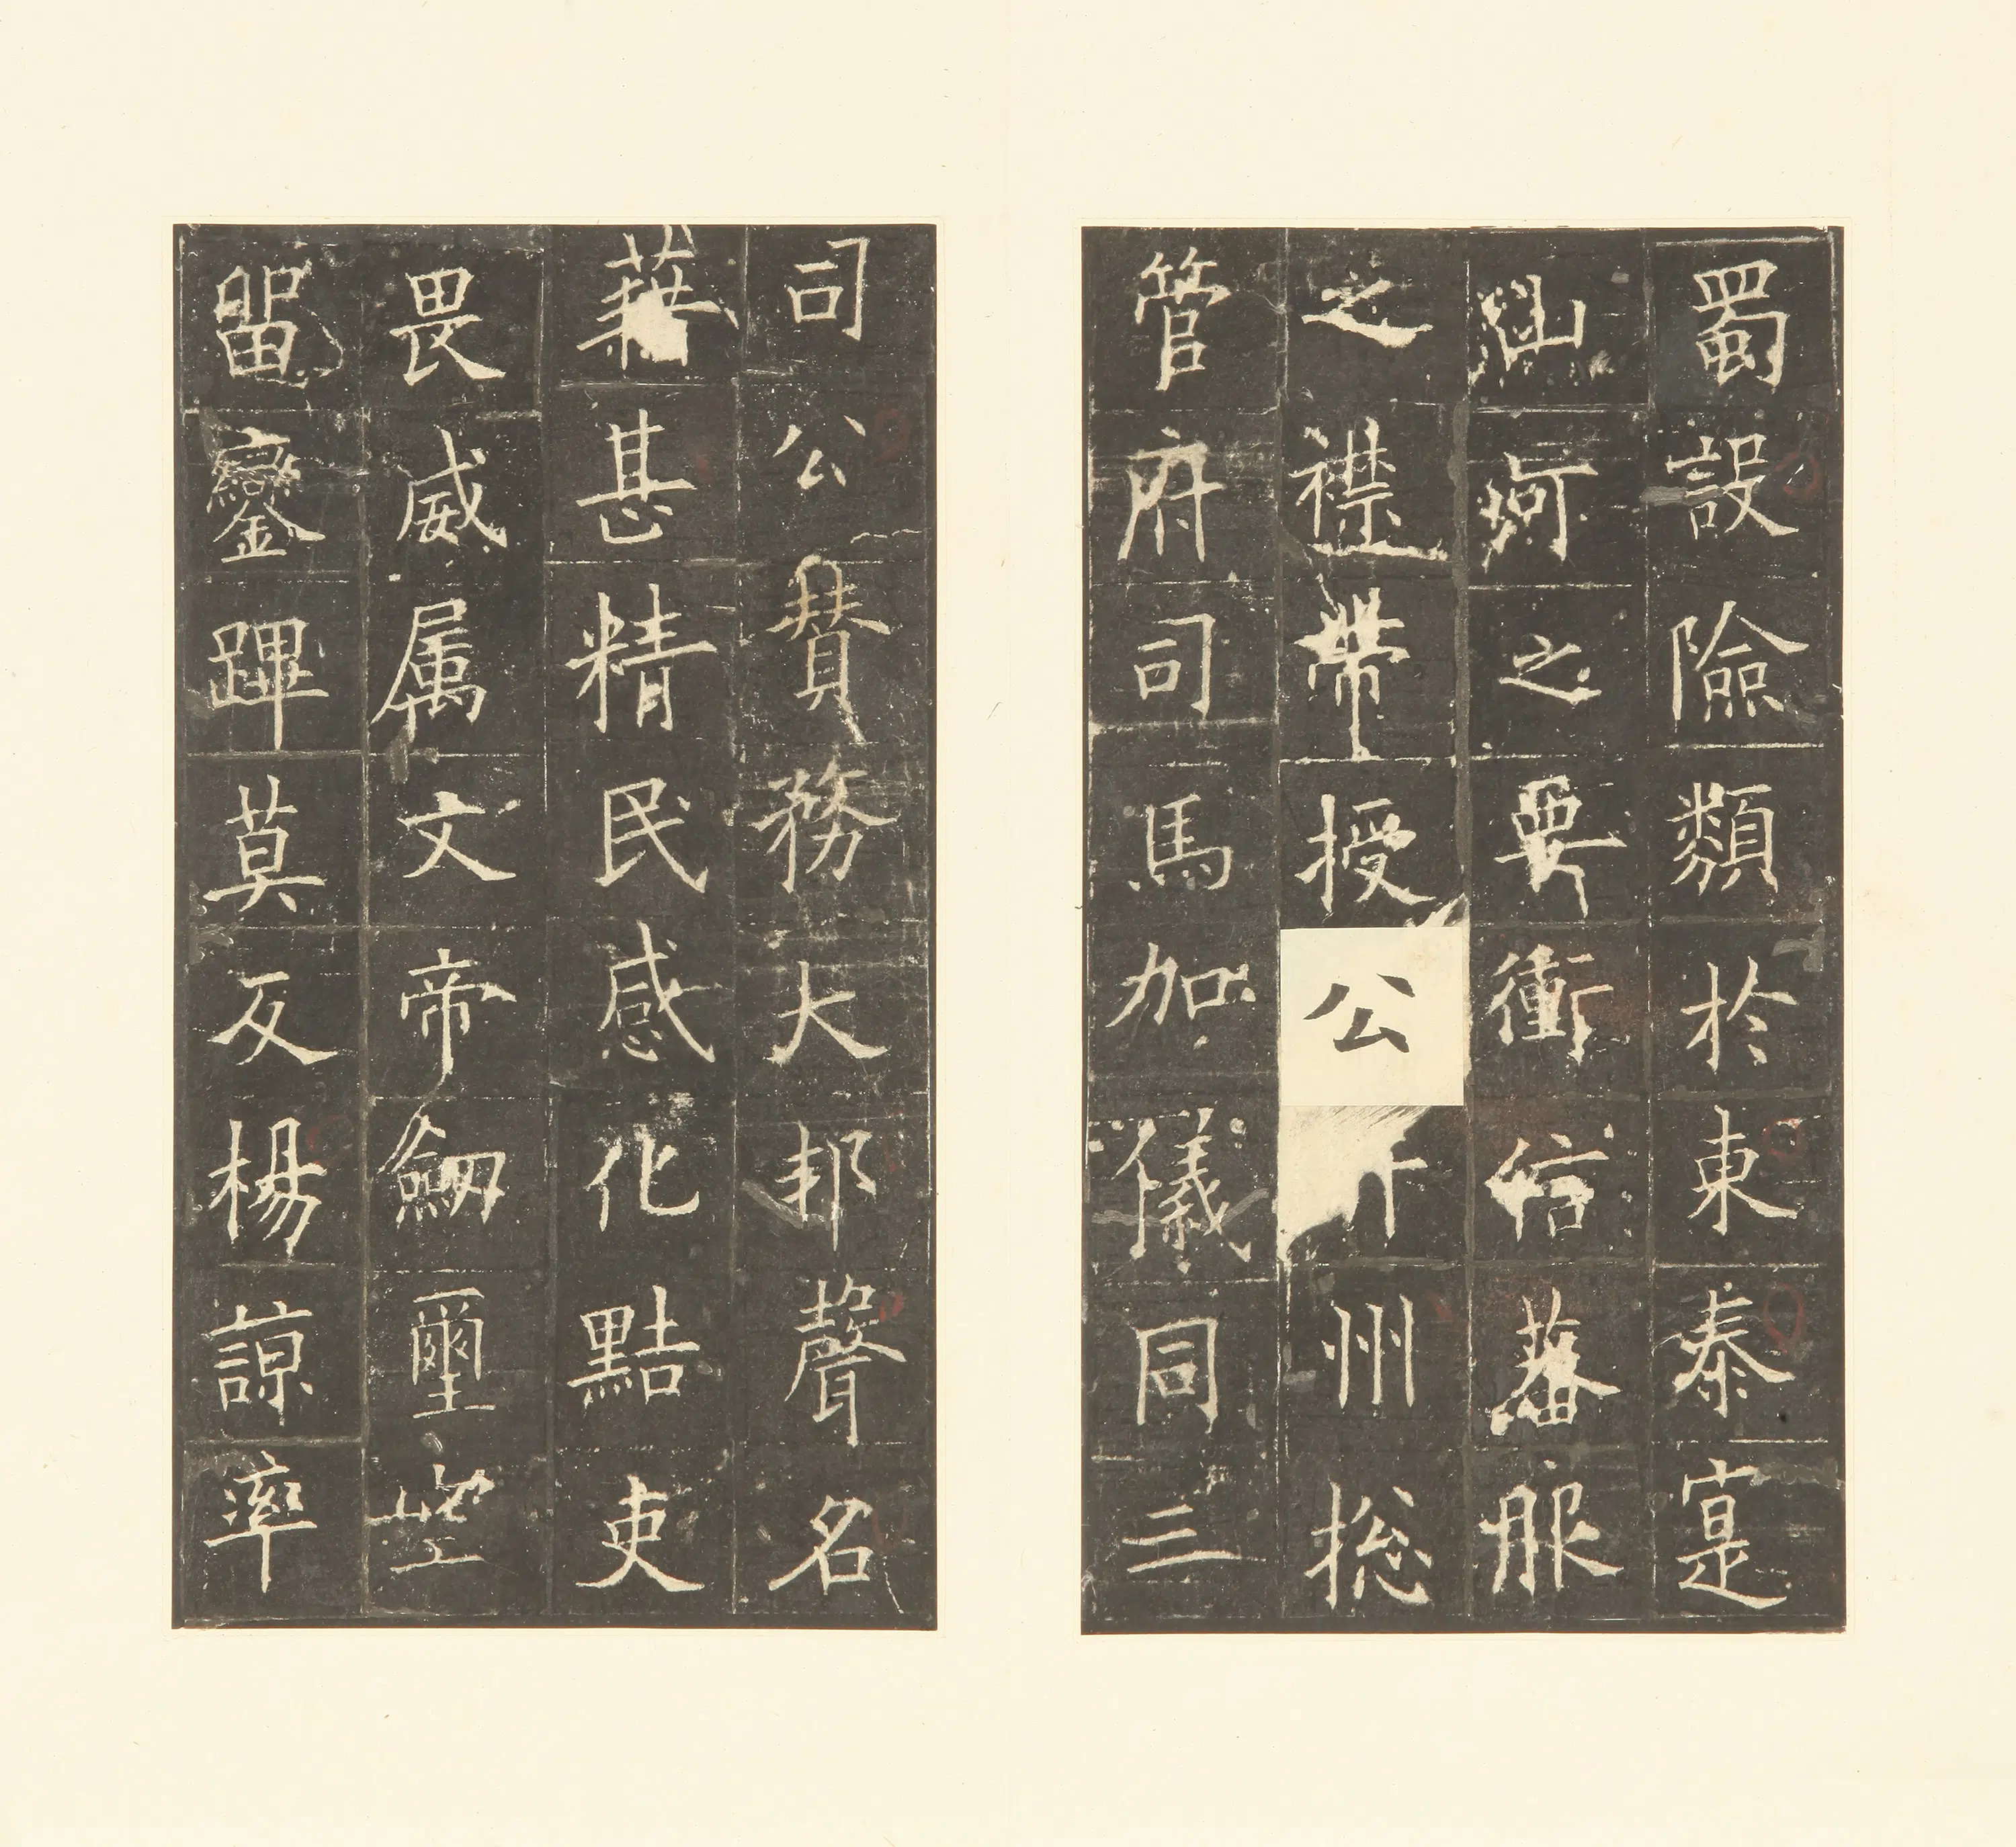 蜀設險類於東秦寔
山河之要衝信蕃服
之襟帶授公并州総
管府司馬加儀同三
司公賛務大邦聲名
藉甚精民感化黠吏
畏威属文帝劒璽空
留鑾蹕莫反楊諒率